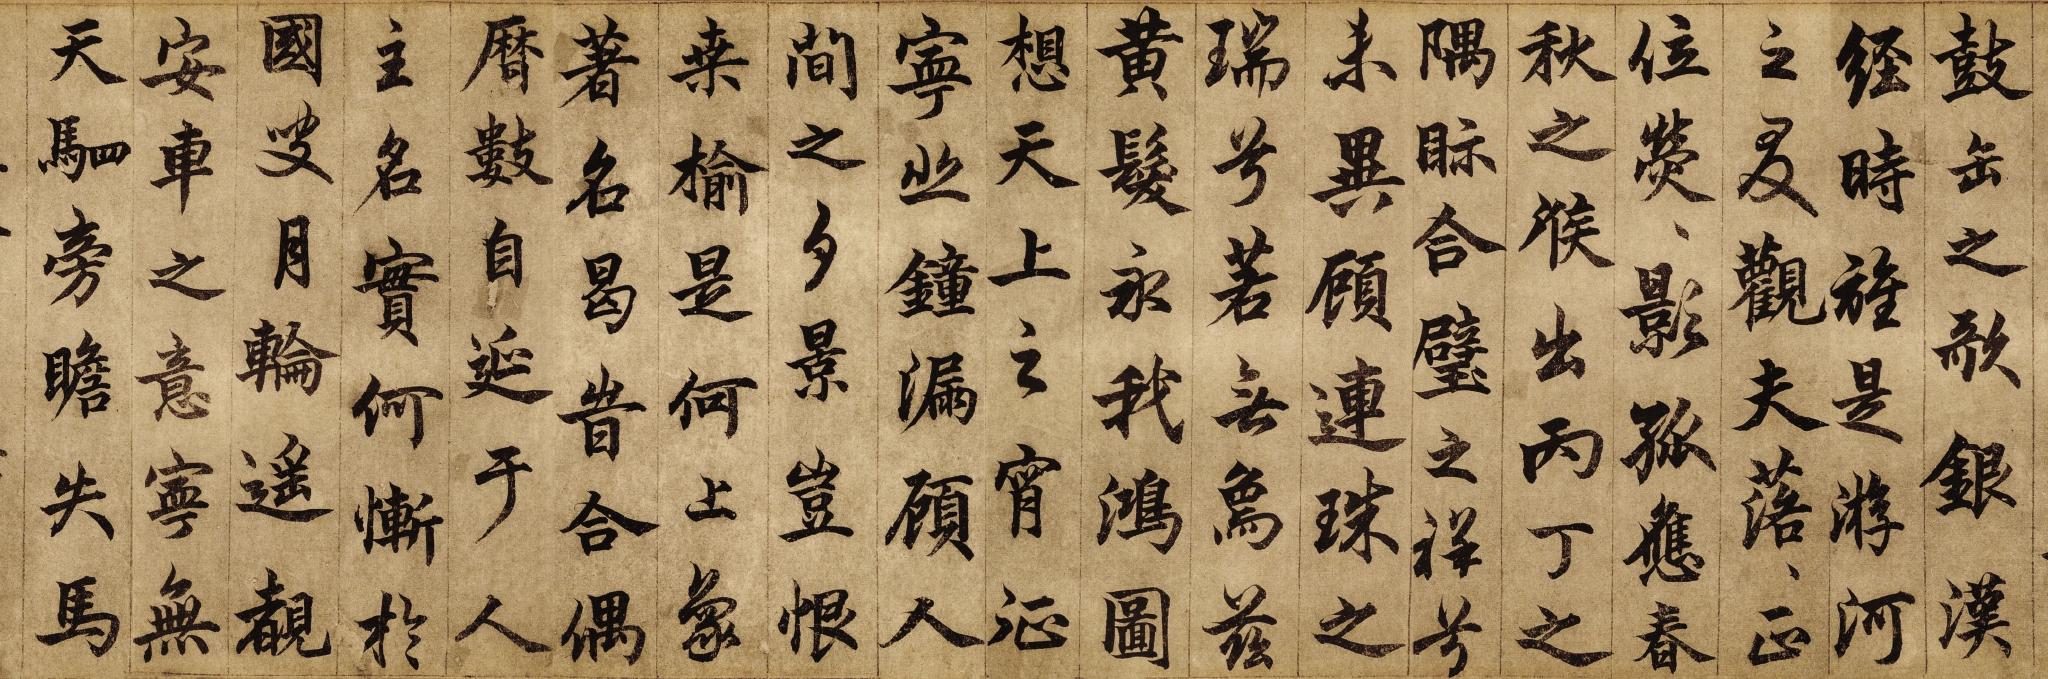 鼓缶之歌銀漢
経時旌是游河
之叟觀夫落、正
位熒、影孤應春
秋之候出丙丁之
隅眎合璧之祥兮
未異顧連珠之
瑞兮若無為茲
黄髮永我鴻圖
想天上之宵征
寧丛鐘漏顧人
間之夕景豈恨
桒榆是何上象
著名曷昔合偶
曆數自延于人
主名實何慚於
國叟月輪遥覩
安車之意寧無
天駟旁瞻失馬